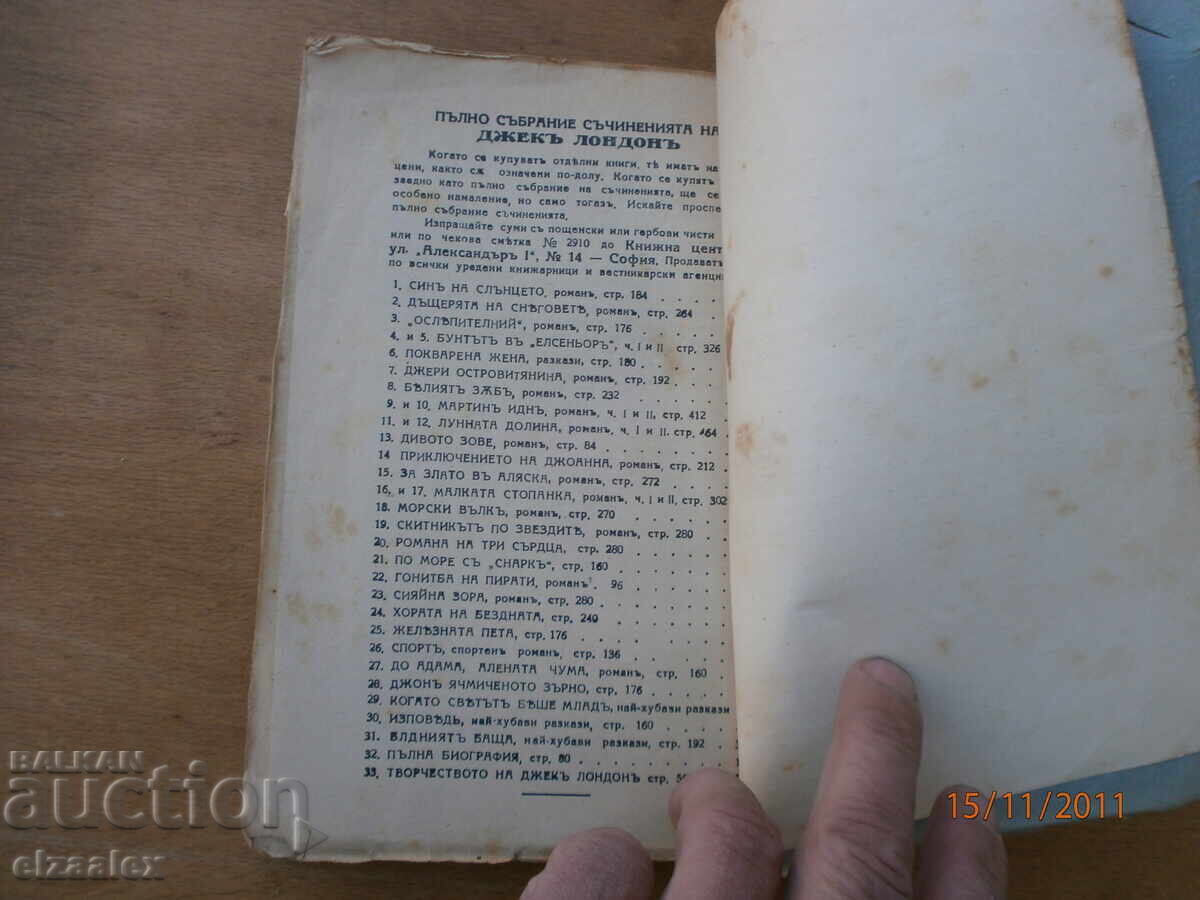 ПЪЛНО СЪБРАНИЕ СЪЧИНЕНИЯТА НА
ДЖЕКЪ ЛОНДОНЪ
Когато се купуватъ отдѣлни книги, тѣ иматъ на
цени, както сѫ означени по-долу. Когато се купятъ
заедно като пълно събрание на съчиненията, ще се
особено намаление, но само тогазъ. Искайте проспе
пълно събрание съчиненията.
Изпращайте суми съ пощенски или гербови чисти
или по чекова смѣтка № 2910 до Книжна цент
ул. „Александъръ I“, № 14 — София. Продаватъ
по всички уредени книжарници и вестникарски агенции
1. СИНЪ НА СЛЪНЦЕТО, романъ, стр. 184 . . . .
2. ДЪЩЕРЯТА НА СНѢГОВЕТѢ, романъ, стр. 264 . .
3. „ОСЛѢПИТЕЛНИЙ“, романъ, стр. 176 . . . . .
4. и 5. БУНТЪТЪ ВЪ „ЕЛСЕНЬОРЪ“, ч. I и II стр. 326
6. ПОКВАРЕНА ЖЕНА, разкази, стр. 180 . . . . .
7. ДЖЕРИ ОСТРОВИТЯНИНА, романъ, стр. 192 . . .
8. БѢЛИЯТЪ ЗѪБЪ, романъ, стр. 232 . . . . .
9. и 10. МАРТИНЪ ИДНЪ, романъ, ч. I и II, стр. 412 .
11. и 12. ЛУННАТА ДОЛИНА, романъ, ч. I и II. стр. 464 .
13. ДИВОТО ЗОВЕ, романъ, стр. 84 . . . . . .
14 ПРИКЛЮЧЕНИЕТО НА ДЖОАННА, романъ, стр. 212 .
15. ЗА ЗЛАТО ВЪ АЛЯСКА, романъ, стр. 272 . . . .
16, и 17. МАЛКАТА СТОПАНКА, романъ, ч. I и II, стр. 302
18. МОРСКИ ВЪЛКЪ, романъ, стр. 270 . . . . .
19. СКИТНИКЪТЪ ПО ЗВЕЗДИТѢ, романъ, стр. 280 . .
20. РОМАНА НА ТРИ СЪРДЦА, стр. 280 . . . . .
21. ПО МОРЕ СЪ „СНАРКЪ“, стр. 160 . . . . . .
22. ГОНИТБА НА ПИРАТИ, романъ. 96 . . . . .
23. СИЯЙНА ЗОРА, романъ, стр. 280 . . . . . .
24. ХОРАТА НА БЕЗДНАТА, стр. 240 . . . . . .
25. ЖЕЛѢЗНАТА ПЕТА, стр. 176 . . . . . . .
26. СПОРТЪ, спортенъ романъ, стр. 136 . . . . .
27. ДО АДАМА, АЛЕНАТА ЧУМА, романъ, стр. 160 .
28. ДЖОНЪ ЯЧМИЧЕНОТО ЗЪРНО, стр. 176 . . . .
29. КОГАТО СВѢТЪТЪ БѢШЕ МЛАДЪ, най-хубави разкази
30. ИЗПОВѢДЬ, най-хубави разкази, стр. 160 . . . .
31. ВЛДНИЯТЪ БАЩА, най-хубави разкази, стр. 192 .
32. ПЪЛНА БИОГРАФИЯ, стр. 80 . . . . . . .
33. ТВОРЧЕСТВОТО НА ДЖЕКЪ ЛОНДОНЪ стр.
BALKAN
auction
elzaalex
15/11/2011